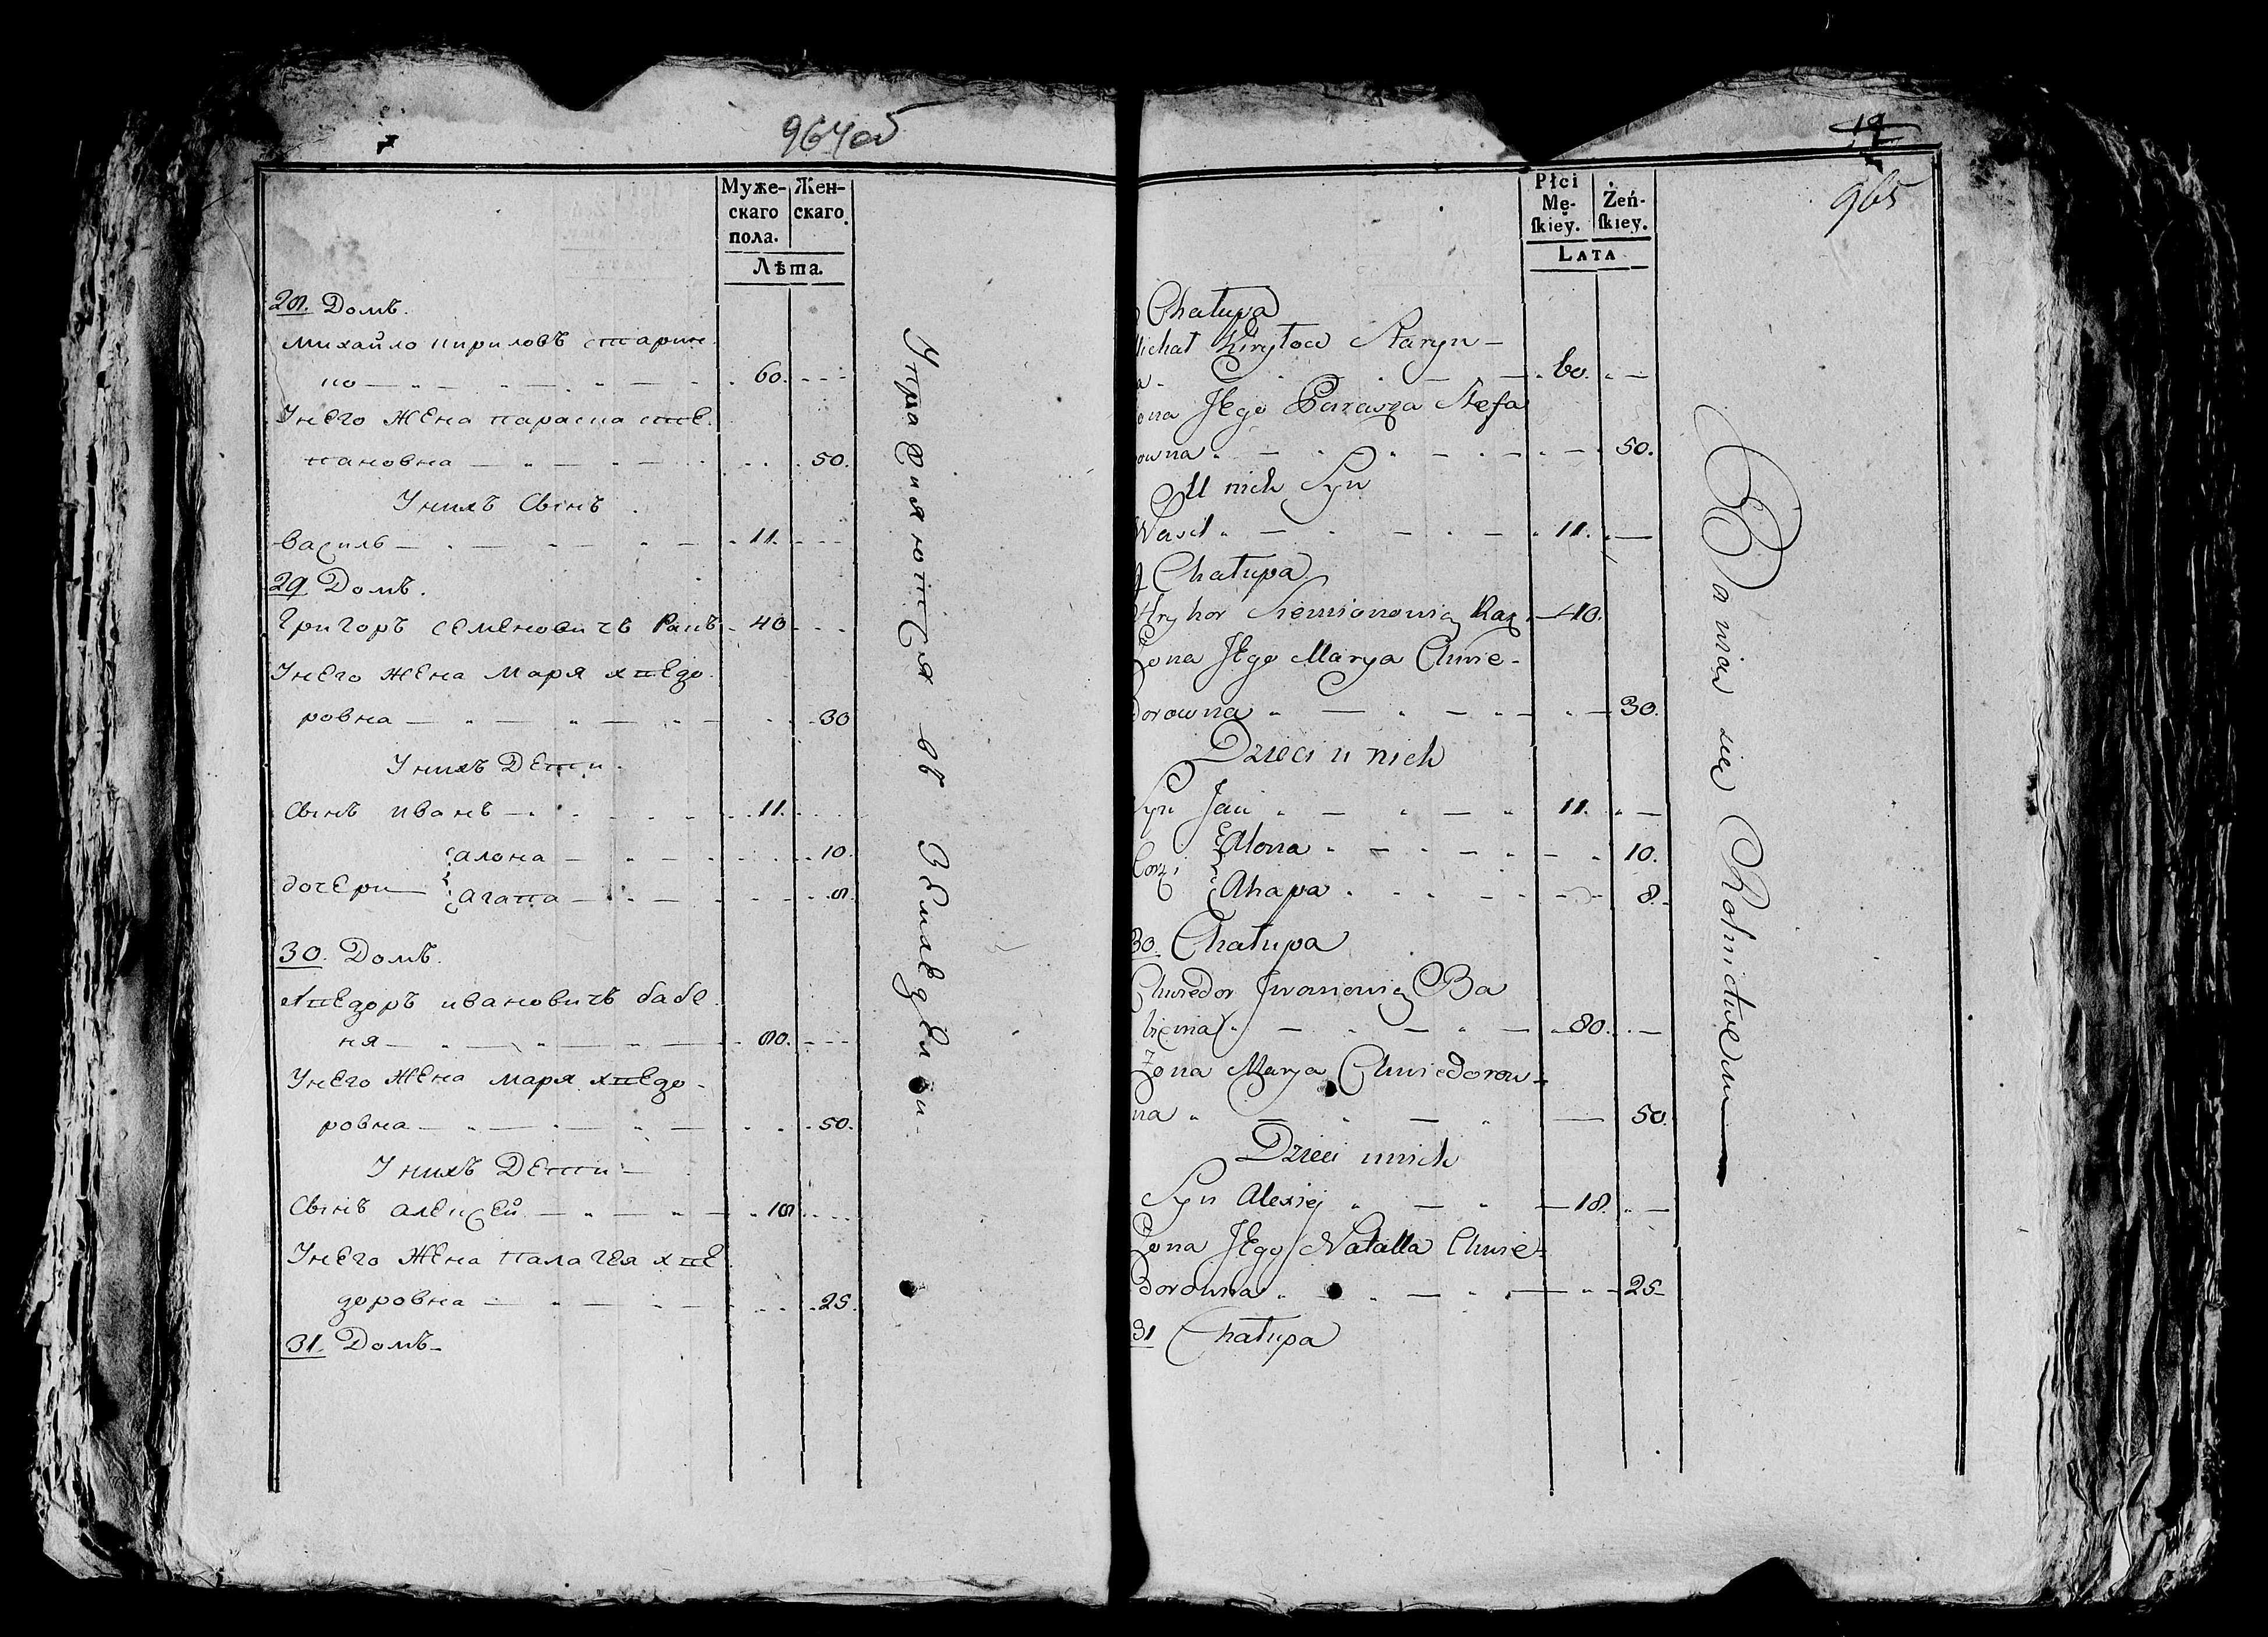 964об
Муже-
скаго
пола.
Жен-
скаго
Лѣта.
28. Домъ.
Михайло кириловъ старин
ко 60.
Унего жена параска сте
пановна 50.
Унихъ Сынъ
василь 11.
29 Домъ.
Григоръ семеновичъРакъ 40
Унего жена маря хведо
ровна 30
Унихъ Дети.
Сынъ иванъ 11.
дочери алона 10.
агапа 8.
30. Домъ.
хведоръ ивановичъ бабе
ня 80.
Унего жена маря хведо-
ровна 50.
Унихъ Дети
Сынъ алексей 18
Унего жена палагея хве
доровна 25
31. Домъ
Упражняются въ Земледелии.
19
965
Płci
Mę-
skiey.
Żeń-
skiey.
LATA
Chałupa
Michał Kiryłow Staryn-
60.
Jego Parasza Stefa
owna 50.
U nich Syn
Wasil 11.
9 Chałupa
Hryhor Siemionowicz Rak 40.
Żona Jego Marya Chwie-
dorowna 30.
Dzieci u nich
Syn Jan 11.
Corki Alona 10.
Ahapa 8.
30. Chałupa
Chwiedor Jwanowicz Ba
bienia 80.
Żona Marya Chwiedorow-
na 50.
Dzieci unich
Syn Alexiej 18.
Żona Jego Natalla Chwie-
dorowna 25
31 Chałupa
Bawią się Rolnictwem